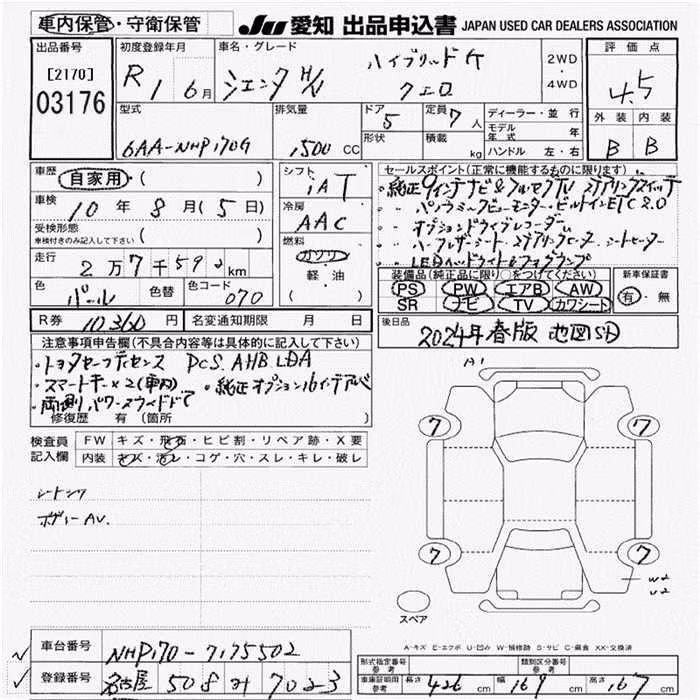 車内保管・守衛保管 JU 愛知 出品申込書 JAPAN USED CAR DEALERS ASSOCIATION
出品番号 初度登録年月 車名・グレード 評価点
[2170] R1 6月 シエンタ H/V ハイブリッドG 2WD・4WD 4.5
03176 クエロ
型式 排気量 ドア 定員 ディーラー・並行 外装 内装
6AA-NHP170G 1500 CC 5 7人 モデル年式 年 B B
形状 積載 kg ハンドル 左・右
車歴 自家用・( ) シフト IAT セールスポイント(正常に機能するものに限ります)
・純正9インチナビ&フルセグTV ステアリングスイッチ
車検 10年8月(5日) 冷房 AAC ・パノラミックビューモニター・ビルトインETC2.0
受検形態 ・オプションドライブレコーダー
車検付きのみ記入して下さい ( ) 燃料 ・ハーフレザーシート・ステアリングヒーター・シートヒーター
走行 2万7千592km ガソリン・LEDヘッドライト&フォグランプ
色 パール 色替 色コード 070 軽・油 装備品(純正品に限り○をつけてください) 新車保証書
( ) PS PW エアB AW 有・無
SR ナビ TV カワシート
R券 10,360円 名変通知期限 月 日 後日品 2024年春版 地図SD
注意事項申告欄(不具合内容等は具体的に記入して下さい)
・トヨタセーフティセンス PCS.AHB.LDA
・スマートキー×2(車内) ・純正オプション16インチアルミ
・両側パワースライドドア
修復歴 有(箇所 )
検査員記入欄 FW キズ・飛石・ヒビ割・リペア跡・X要
内装 キズ・汚レ・コゲ・穴・スレ・キレ・破レ
A1
7 7
シートシワ
ボデーAV.
7 7
W2
U2
スペア
A-キズ E-エクボ U-凹み W-補修跡 S-サビ C-腐食 XX-交換済
車台番号 NHP170-7175502
形式指定番号 参考 類別区分番号 参考
登録番号 名古屋 508 す 7023
車庫証明用 参考 長さ 426 cm 幅 169 cm 高さ 167 cm